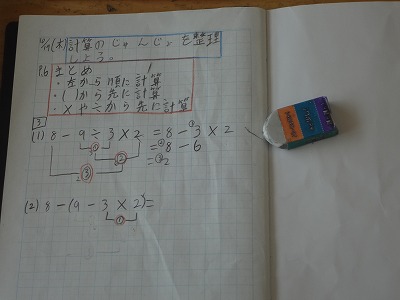 10/15(木) 計算のじゅんじょを整理
しよう。
P.6 まとめ
・左から順に計算
・( )から先に計算
・×や÷から先に計算
3
(1) 8-9÷3×2 =8-3×2
=8-6
=2
① ② ③
(2) 8-(9-3×2)=
①